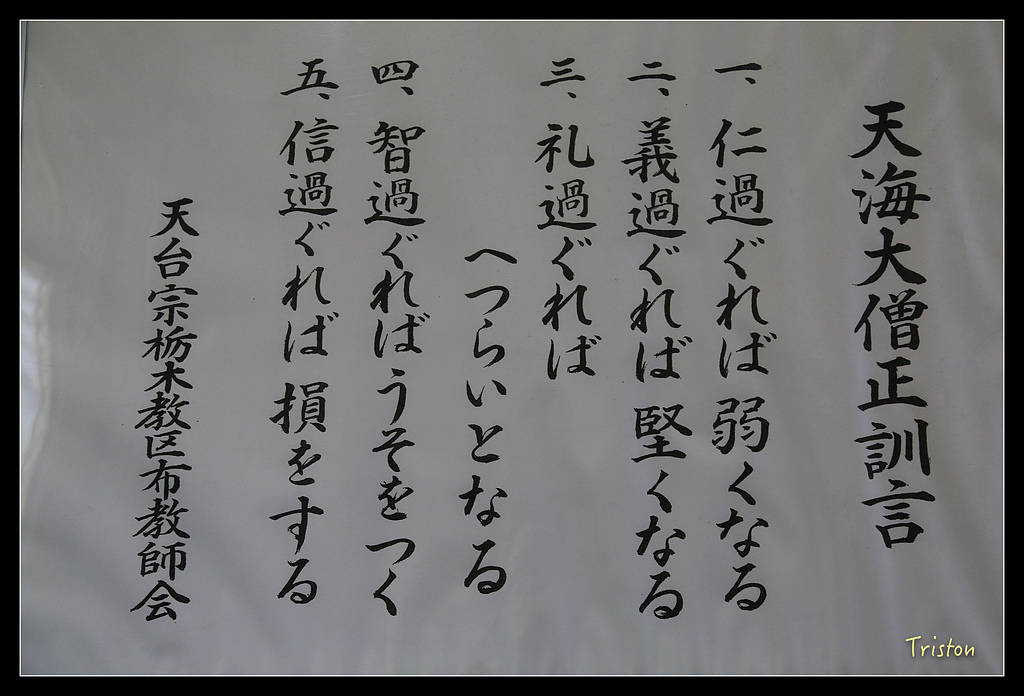 天海大僧正訓言
一、仁過ぐれば弱くなる
二、義過ぐれば堅くなる
三、礼過ぐれば
へつらいとなる
四、智過ぐればうそをつく
五、信過ぐれば損をする
天台宗栃木教区布教師会
Triston